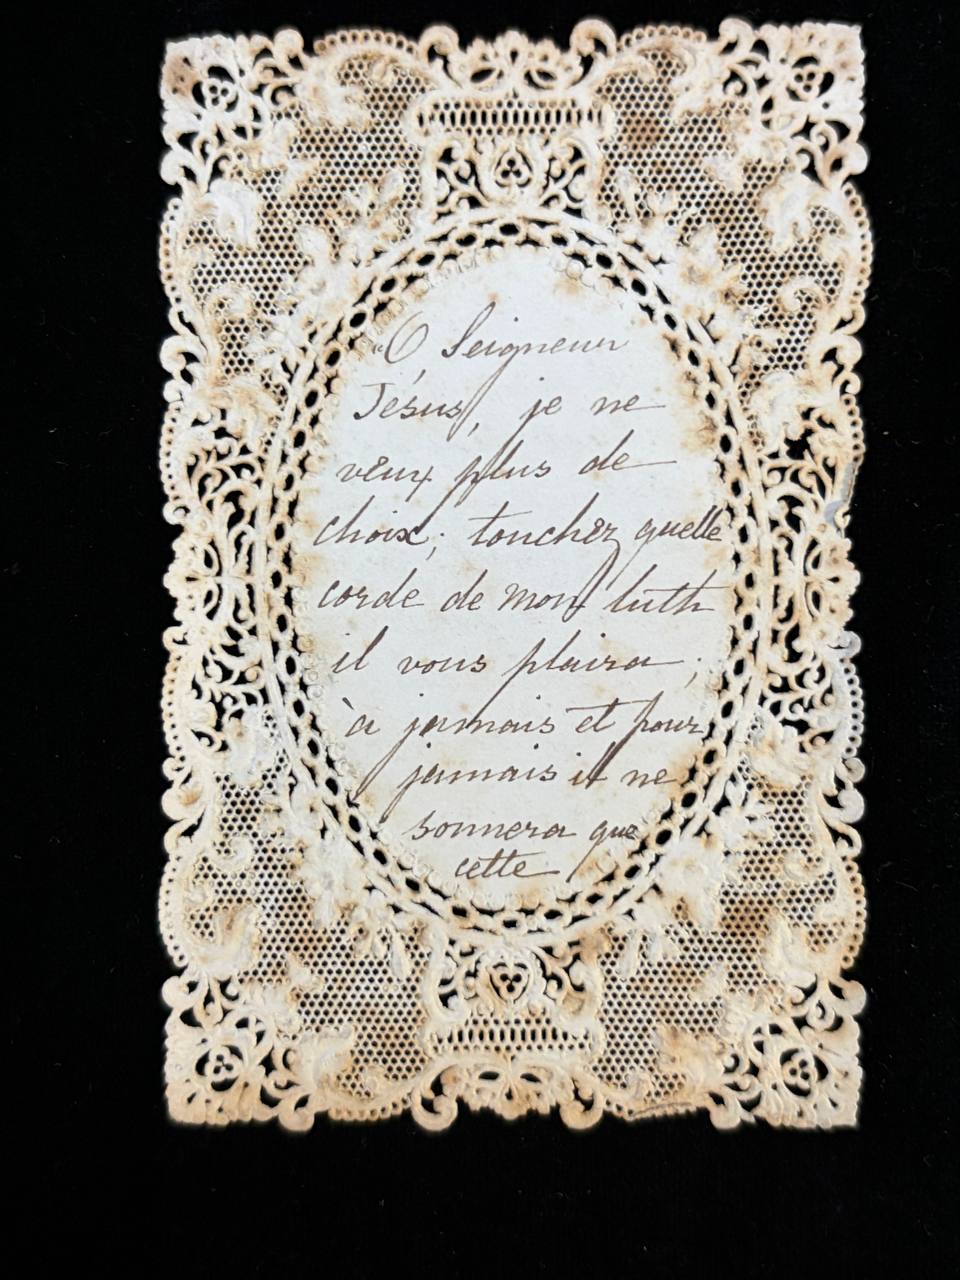 "Ô Seigneur
Jésus, je ne
veux plus de
choix; touchez quelle
corde de mon luth
il vous plaira;
à jamais et pour
jamais il ne
sonnera que
cette